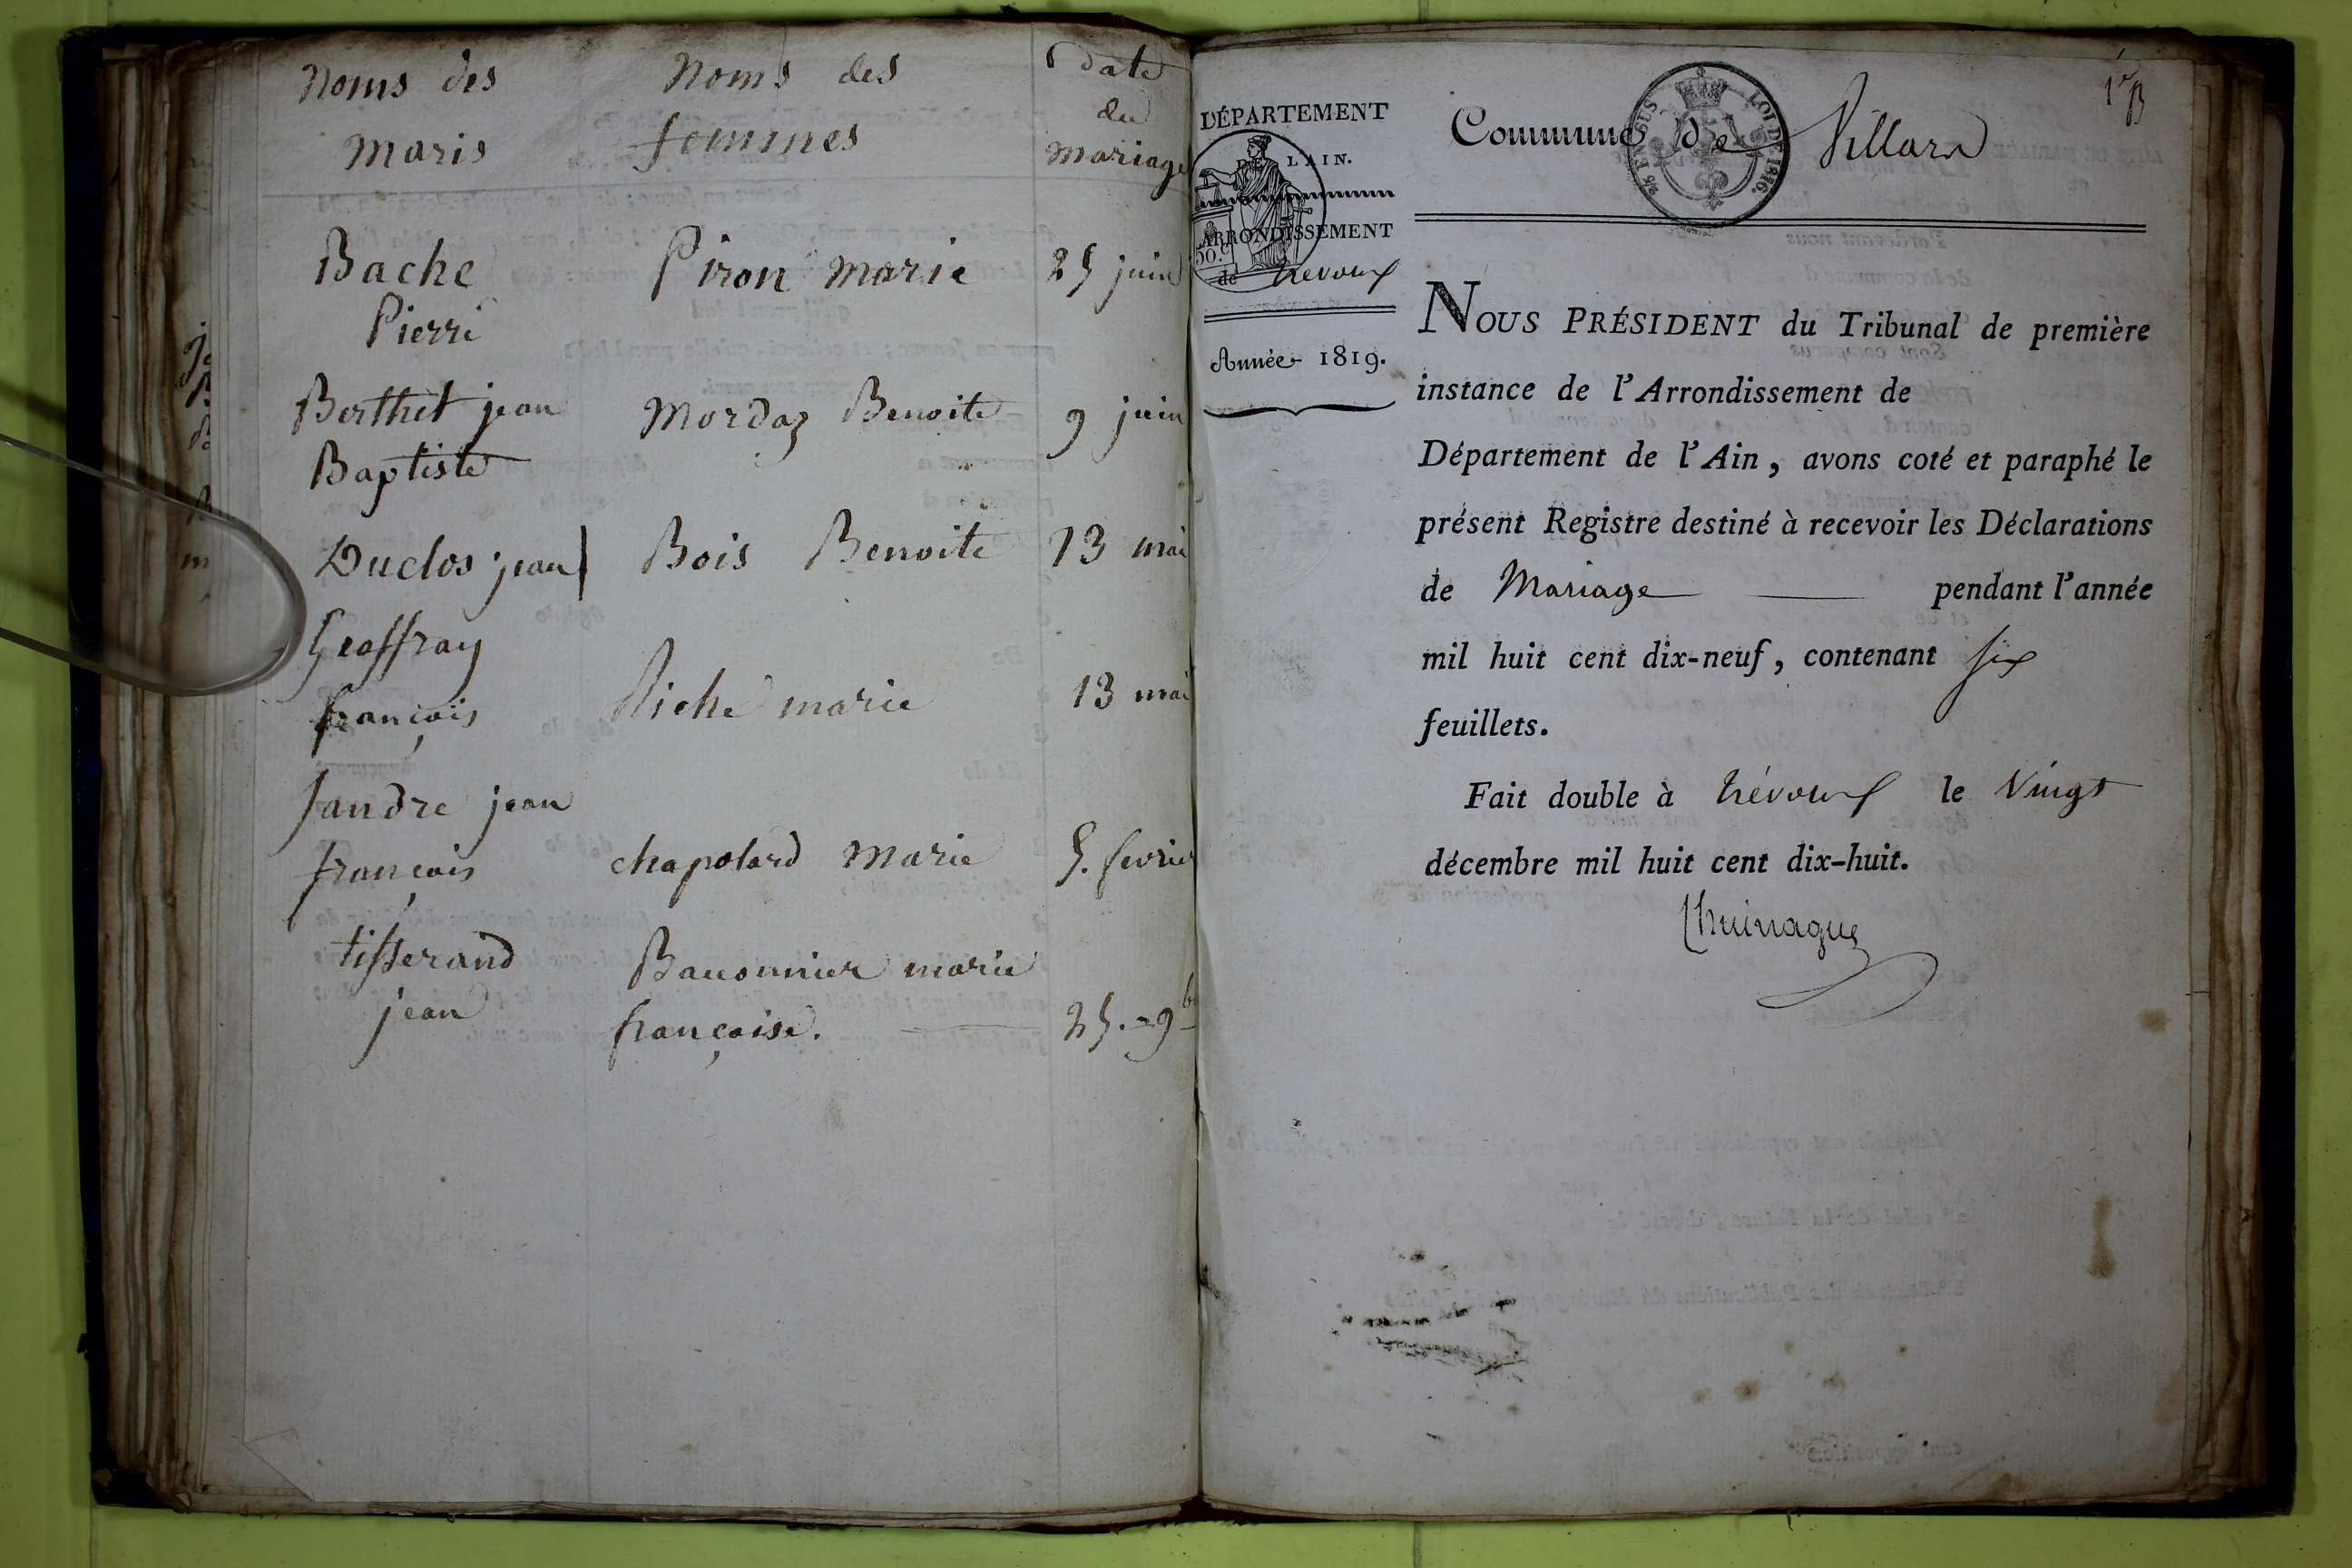 Noms des Noms des date
maris femmes du
mariage
Bache Piron marie 25 juin
Pierre
Berthet jean Mordaz Benoite 9 juin
Baptiste
Duclos jean Bois Benoite 13 mai
Geoffray
françois Riche marie 13 mai
Jandre jean
françois chapolard marie 5. fevrier
tisserand marie
jean françoise. 25. 9b
1er
DÉPARTEMENT
DE L'AIN.
ARRONDISSEMENT
de trévoux
Année 1819.
50.c
Commune de Villars
LOI DE 1816.
NOUS PRÉSIDENT du Tribunal de première
instance de l'Arrondissement de
Département de l'Ain, avons coté et paraphé le
présent Registre destiné à recevoir les Déclarations
de Mariage pendant l'année
mil huit cent dix-neuf, contenant six
feuillets.
Fait double à trévoux le Vingt
décembre mil huit cent dix-huit.